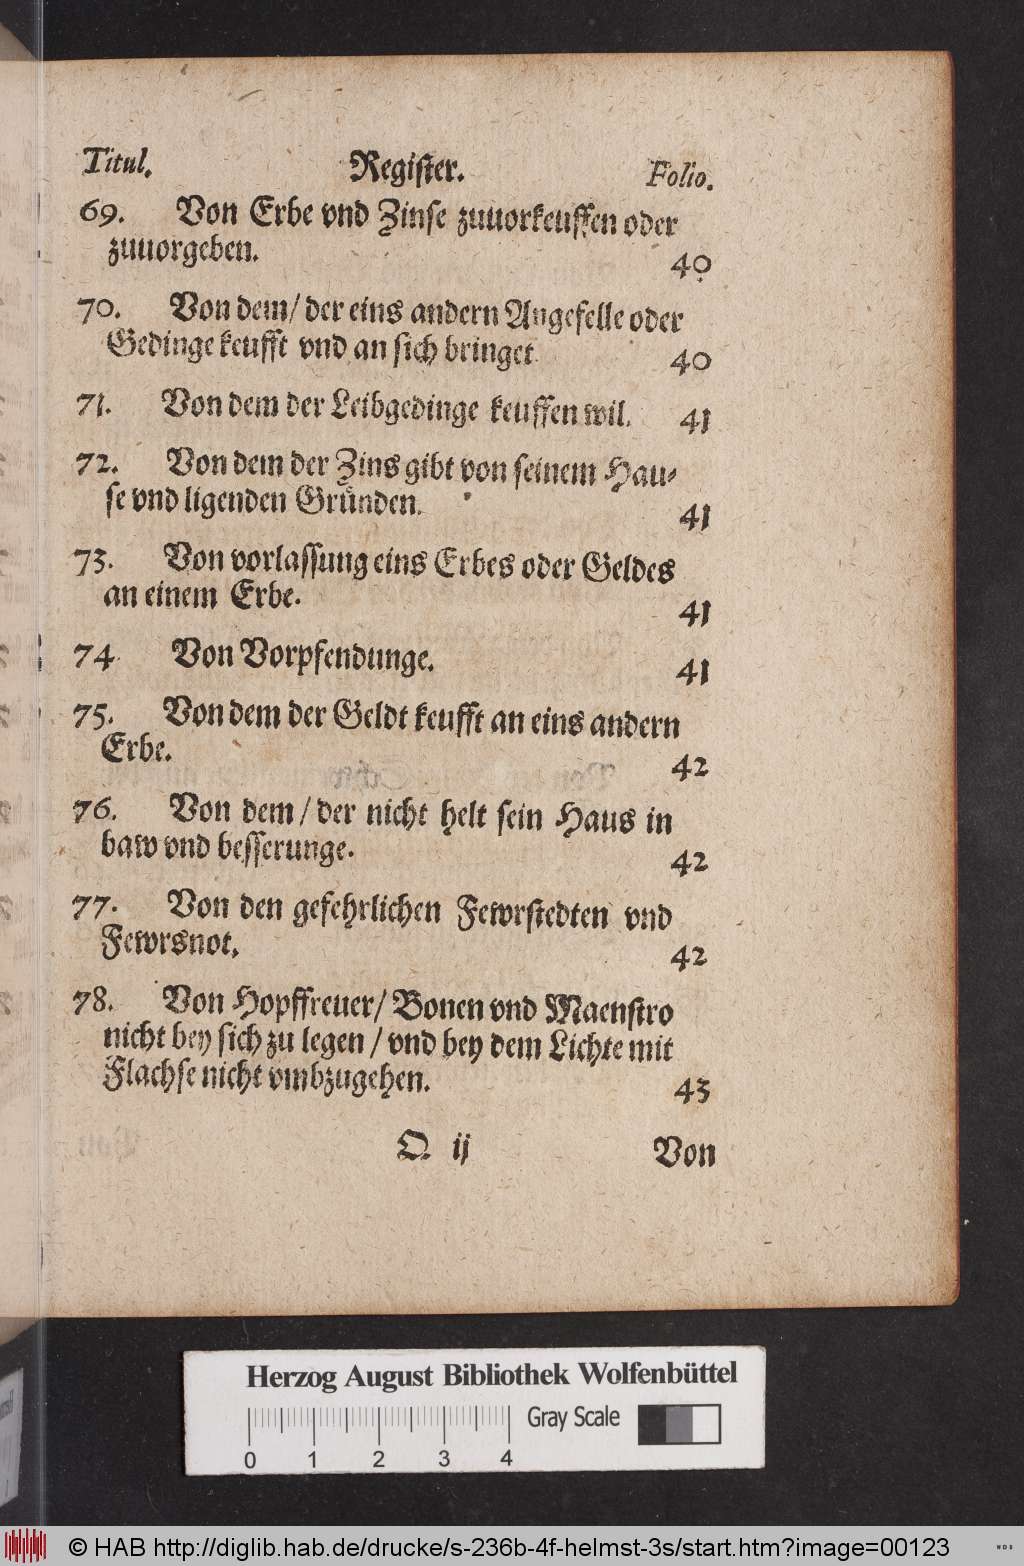 Titul. Register. Folio.
69. Von Erbe vnd Zinse zuuorkeuffen oder
zuuorgeben. 40
70. Von dem/ der eins andern Angefelle oder
Gedinge keufft vnd an sich bringet 40
71. Von dem der Leibgedinge keuffen wil. 41
72. Von dem der Zins gibt von seinem Hau-
se vnd ligenden Gründen. 41
73. Von vorlassung eins Erbes oder Geldes
an einem Erbe. 41
74 Von Vorpfendunge. 41
75. Von dem der Geldt keufft an eins andern
Erbe. 42
76. Von dem / der nicht helt sein Haus in
baw vnd besserunge. 42
77. Von den gefehrlichen Fewrstedten vnd
Fewrsnot. 42
78. Von Hopffreuer/ Bonen vnd Maenstro
nicht bey sich zu legen / vnd bey dem Lichte mit
Flachse nicht vmbzugehen. 43
O ij Von
Herzog August Bibliothek Wolfenbüttel
Gray Scale
0 1 2 3 4
© HAB http://diglib.hab.de/drucke/s-236b-4f-helmst-3s/start.htm?image=00123